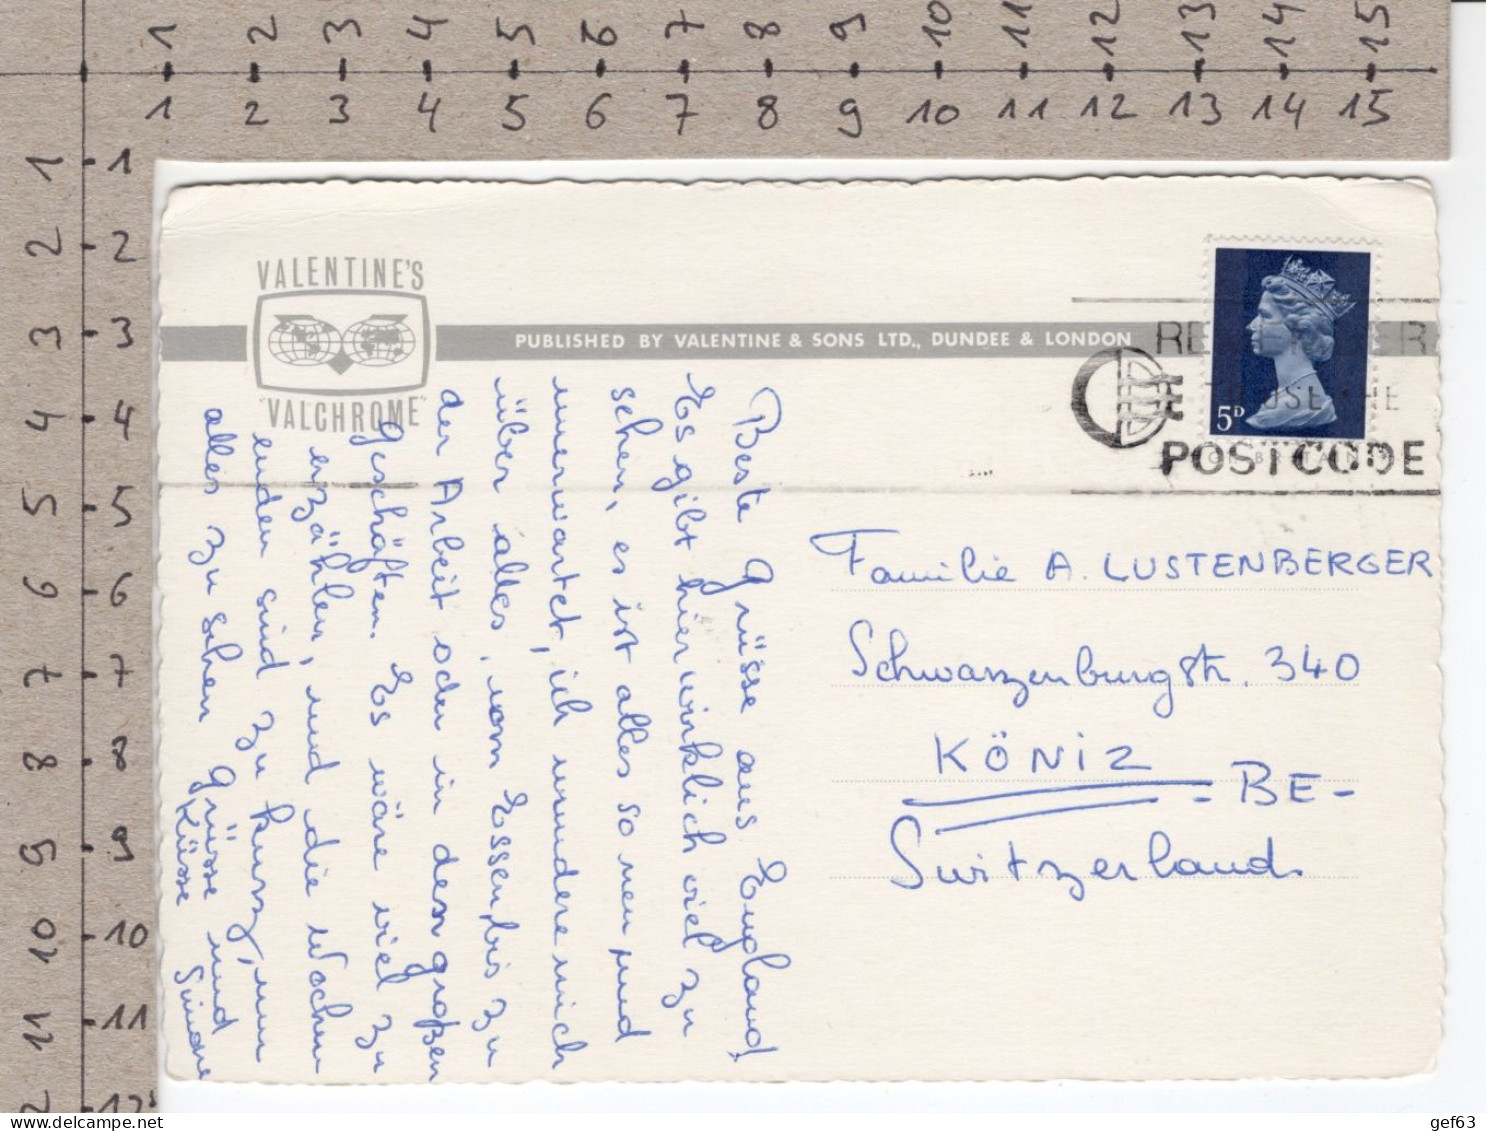 1 2 3 4 5 6 7 8 9 10 11 12 13 14 15
1 2 3 4 5 6 7 8 9 10 11 12 13 14 15
1 1
2 2
3 3
4 4
5 5
6 6
7 7
8 8
9 9
10 10
11 11
2 12
VALENTINE'S
"VALCHROME"
PUBLISHED BY VALENTINE & SONS LTD., DUNDEE & LONDON
5D
POSTCODE
Beste Grüsse aus England!
Es gibt hier wirklich viel zu
sehen, es ist alles so neu und
unerwartet, ich wundere mich
über alles, vom Essen bis zu
der Arbeit oder in den großen
Geschäften. Es wäre viel zu
erzählen, und die Wochen
enden sind zu kurz, um
alles zu sehen Grüsse und
Küsse Simone
Familie A. LUSTENBERGER
Schwarzenburgstr. 340
KÖNIZ
- BE -
Switzerland.
gef63